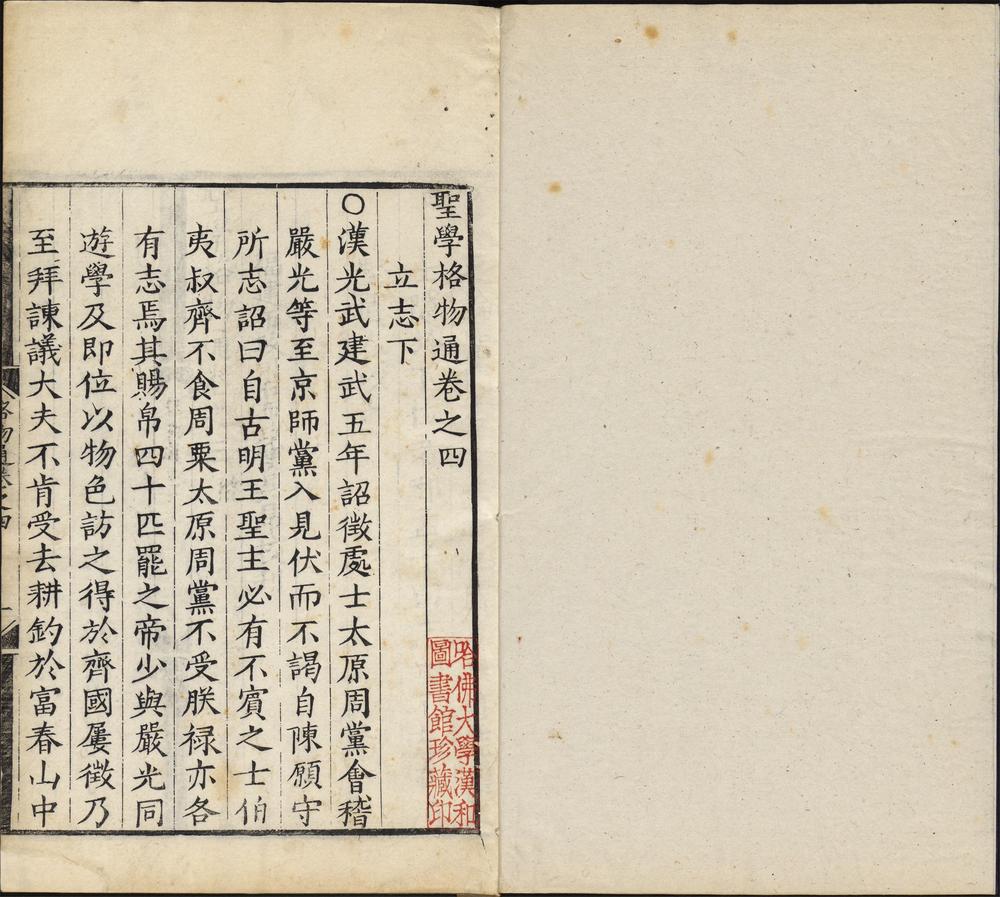 聖學格物通卷之四
立志下
○漢光武建武五年詔徵處士太原周黨會稽
嚴光等至京師黨入見伏而不謁自陳願守
所志詔曰自古明王聖主必有不賓之士伯
夷叔齊不食周粟太原周黨不受朕祿亦各
有志焉其賜帛四十匹罷之帝少與嚴光同
遊學及即位以物色訪之得於齊國屢徵乃
至拜諫議大夫不肯受去耕釣於富春山中
格物通卷之四
一
哈佛大學漢和
圖書館珍藏印